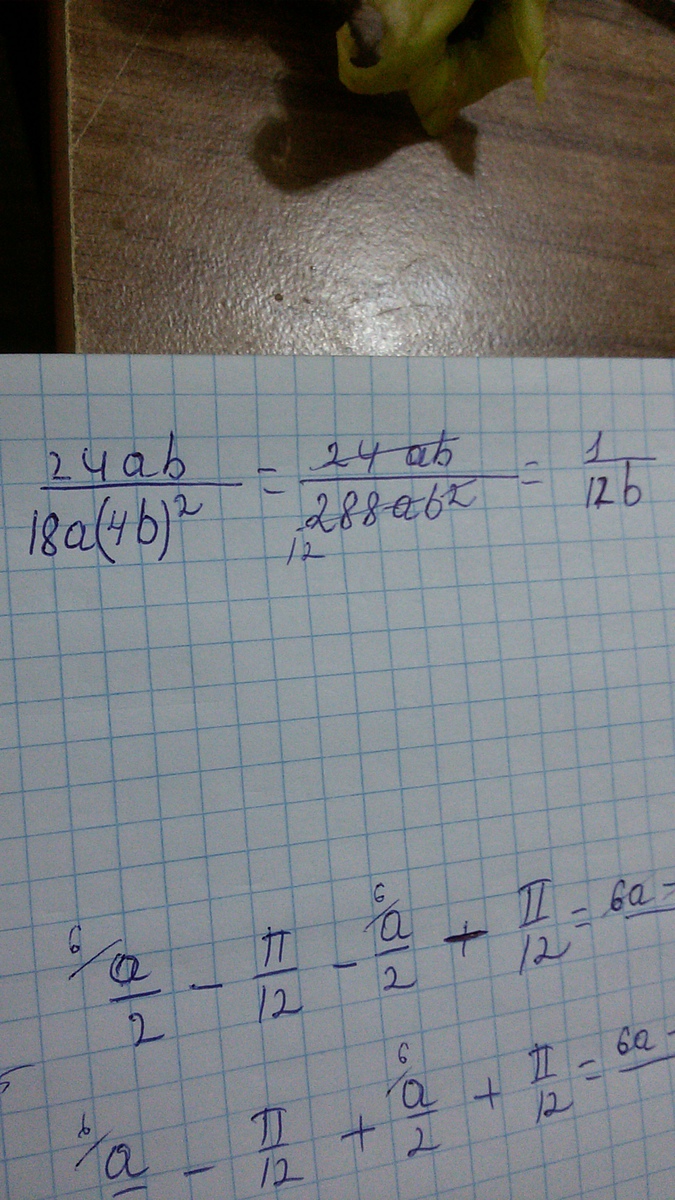 24ab / 18a(4b)² = 24 ab / 288ab² = 1 / 12b
12
6/ a/2 - π/12 - 6/ a/2 + π/12 = 6a -
6/ a - π/12 + 6/ a/2 + π/12 = 6a -